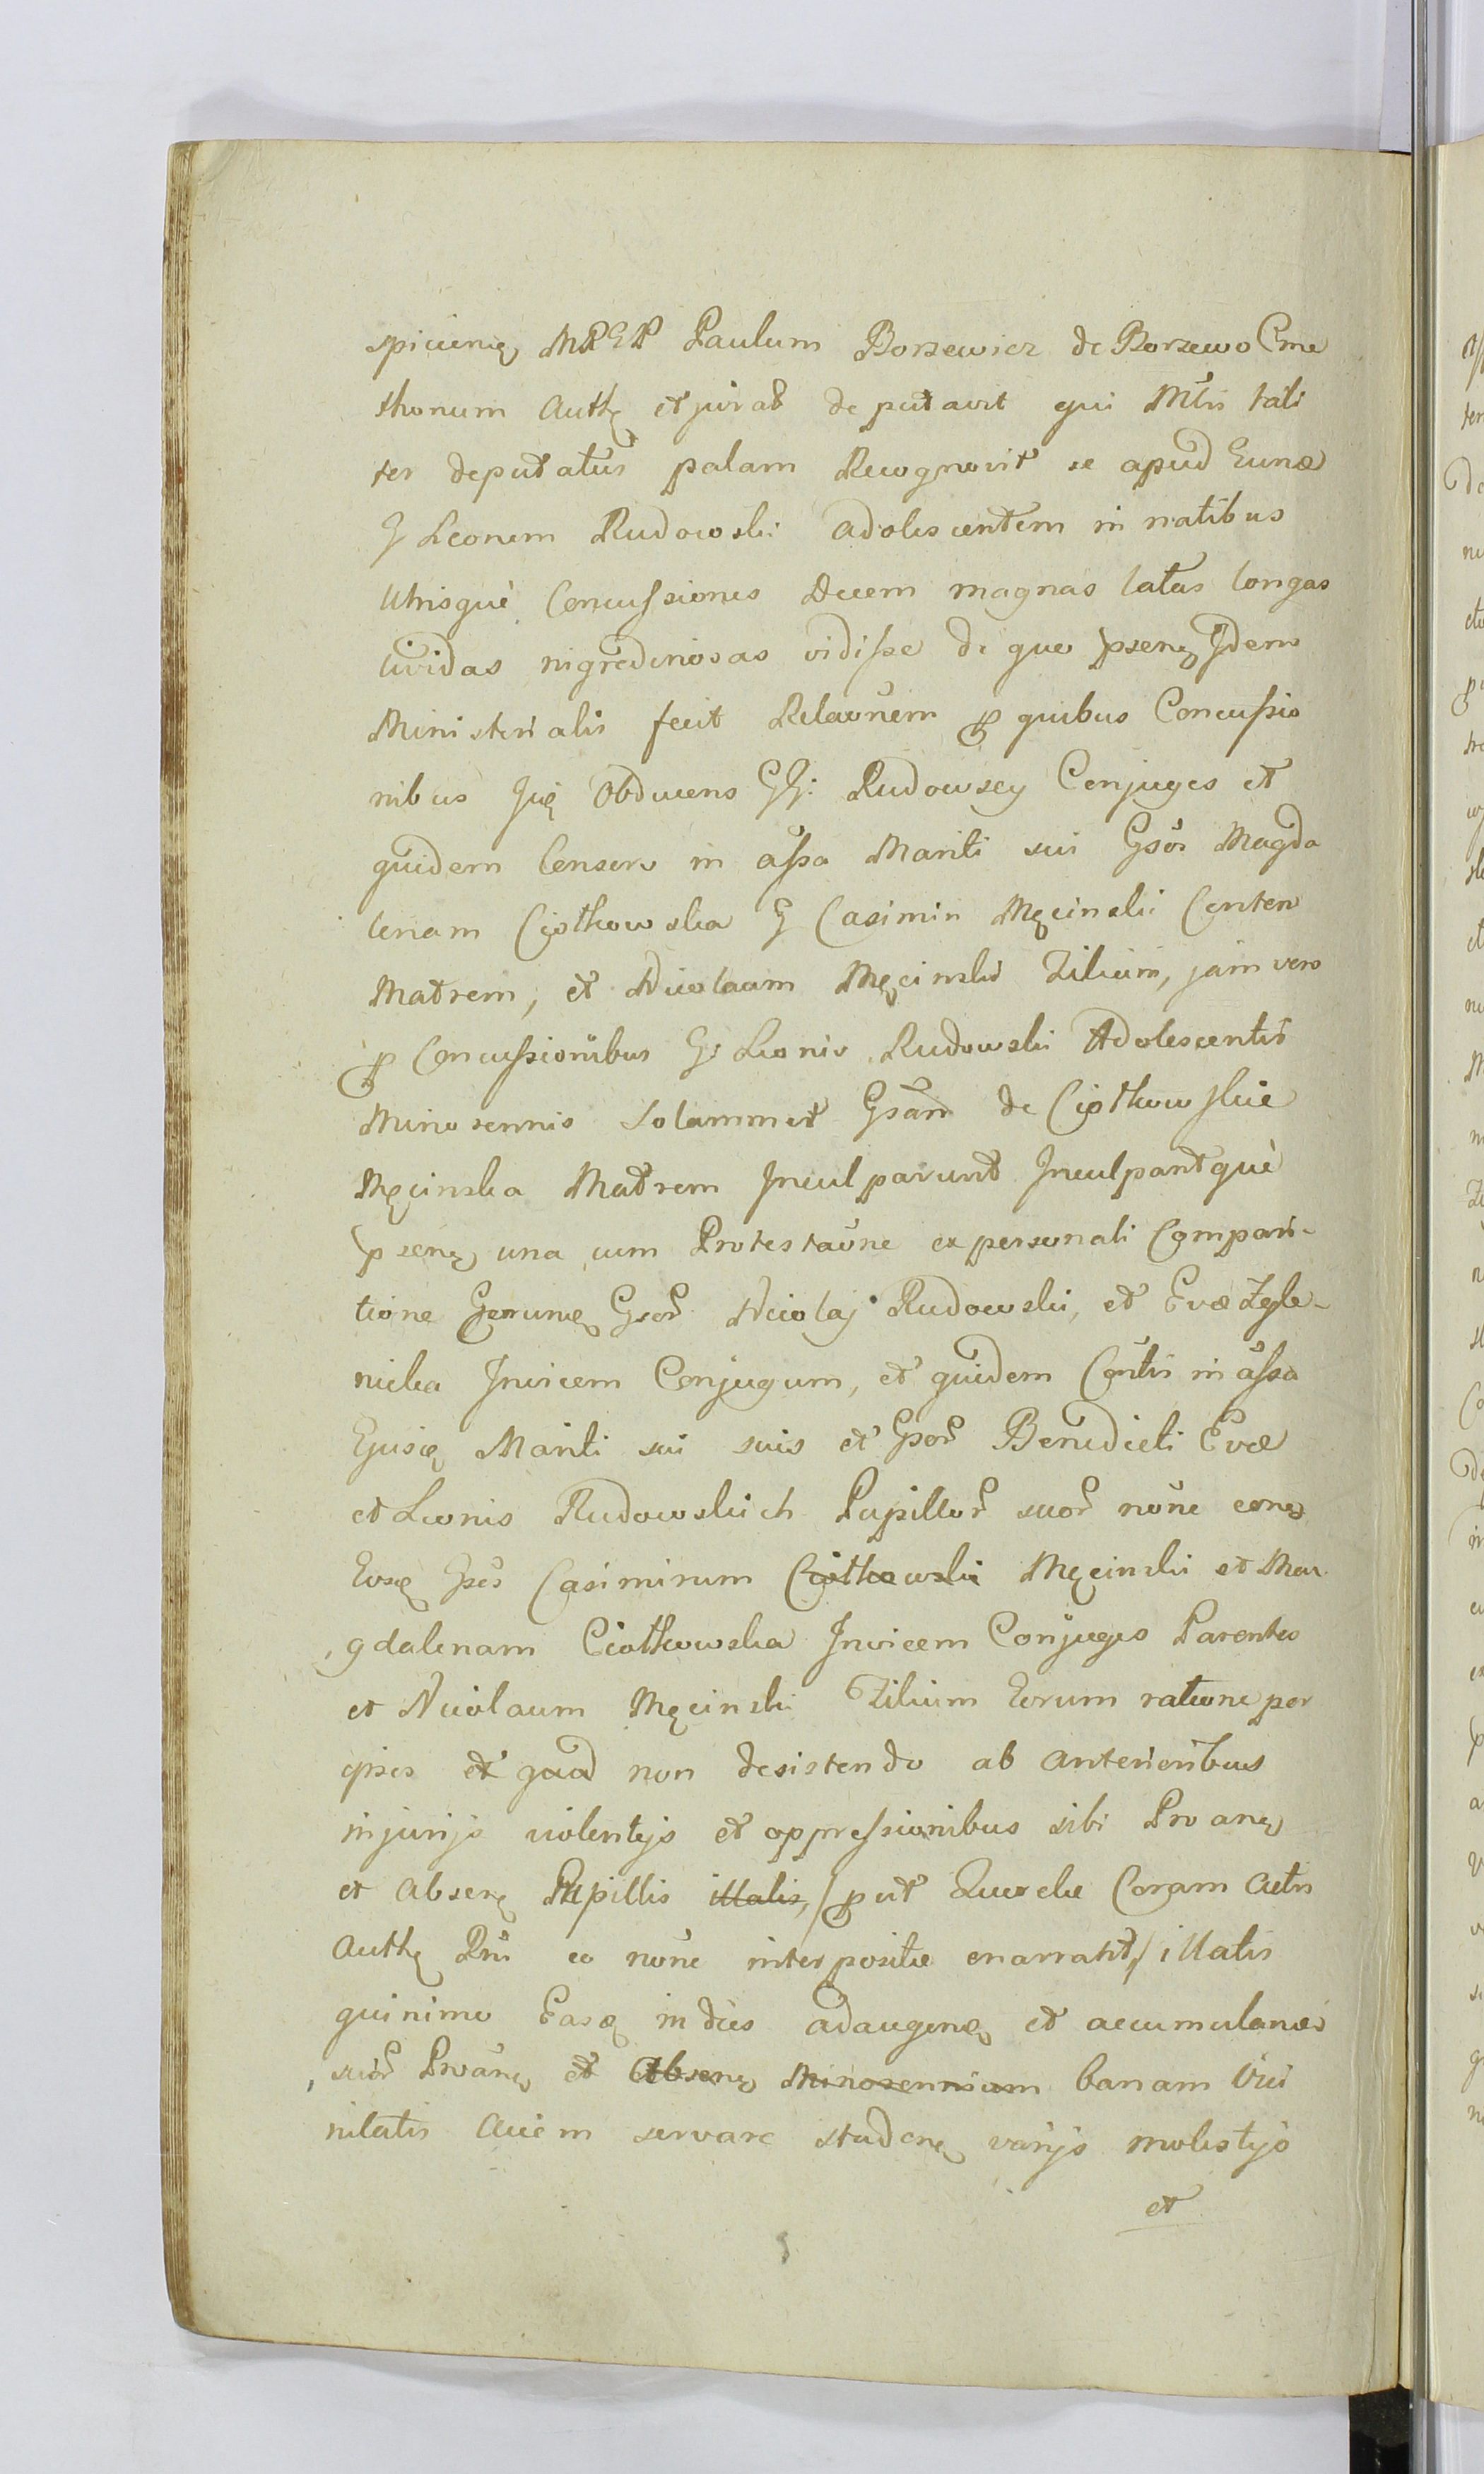 spicienę MRGR Paulum Borzewicz de Borzewo Cme
thonum Autħę et jurat deputavit qui Mtlis tali
ter deputatus palam Recognovit se apud Eunde
G Leonem Rudowski adolescentem in natibus
Utrisque Concussiones Decem magnas latas longas
lividas nigredinosas vidisse de quo psenę Idem
Ministerialis fecit Relaõnem p quibus Concussio
nibus Iię Obducens GG: Rudowscy Conjuges et
quidem Consors in assa Mariti sui Gsos Magda
lenam Ciotkowska G Casimiri Męcinski Conten
Matrem, et Nicolaum Męcinski Filium, jam vero
p Concussionibus G: Leonis Rudowski Adolescentis
Minorennis Solammet Gsam de Ciotkowskie
Męcinska Matrem Inculparunt Inculpantque
psenę una cum Protestaõne ex personali Compari-
tione Gerumę Gsor Nicolaj Rudowski, et Evæ Zgle-
nicka Invicem Conjugum, et quidem Contis in assa
Ejusię Mariti sui suis et Gsor Benedicti Evæ
et Leonis Rudowskich Pupillor suor noñe conę
Eosę Gsos Casimirum Ciotkowski Męcinski et Ma
gdalenam Ciotkowska Invicem Conjuges Parentes
et Nicolaum Męcinski Filium Eorum ratione per
ipsos et quod non desistendo ab anterioribus
injurijs violentijs et oppressionibus sibi Proanę
et Absenę Pupillis illatis, /put Querelæ Coram Actis
Autħę Pni eo noñe interpositæ enarrant/ illatis
quinimo Easę in dies adaugenę et accumulanes
suor Proanę et Absenę Minorennium bonam Vici
nitatis Aciem servare studenę varijs molestijs
et